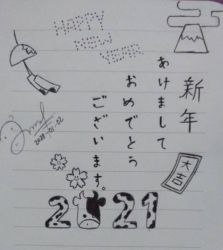 HAPPY
NEW
YEAR
新年
あけまして
おめでとう
ございます。
大吉
2021